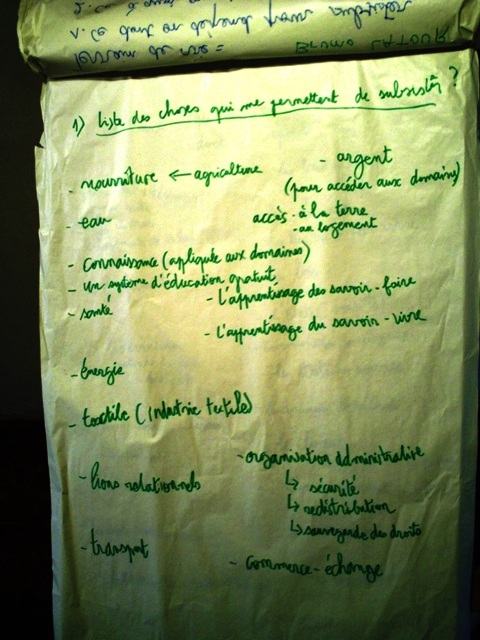 BRUNO LATOUR
1) liste des choses qui me permettent de subsister ?
- nourriture ← agriculture
- argent
(pour accéder aux domaines)
- eau
accès - à la terre
- au logement
- Connaissance (appliquée aux domaines)
- Un système d'éducation gratuit
- santé
- l'apprentissage des savoir-faire
- l'apprentissage du savoir-vivre
- énergie
- textile (industrie textile)
- liens relationnels
- organisation administrative
↳ sécurité
↳ redistribution
↳ sauvegarde des droits
- transport
- commerce - échange